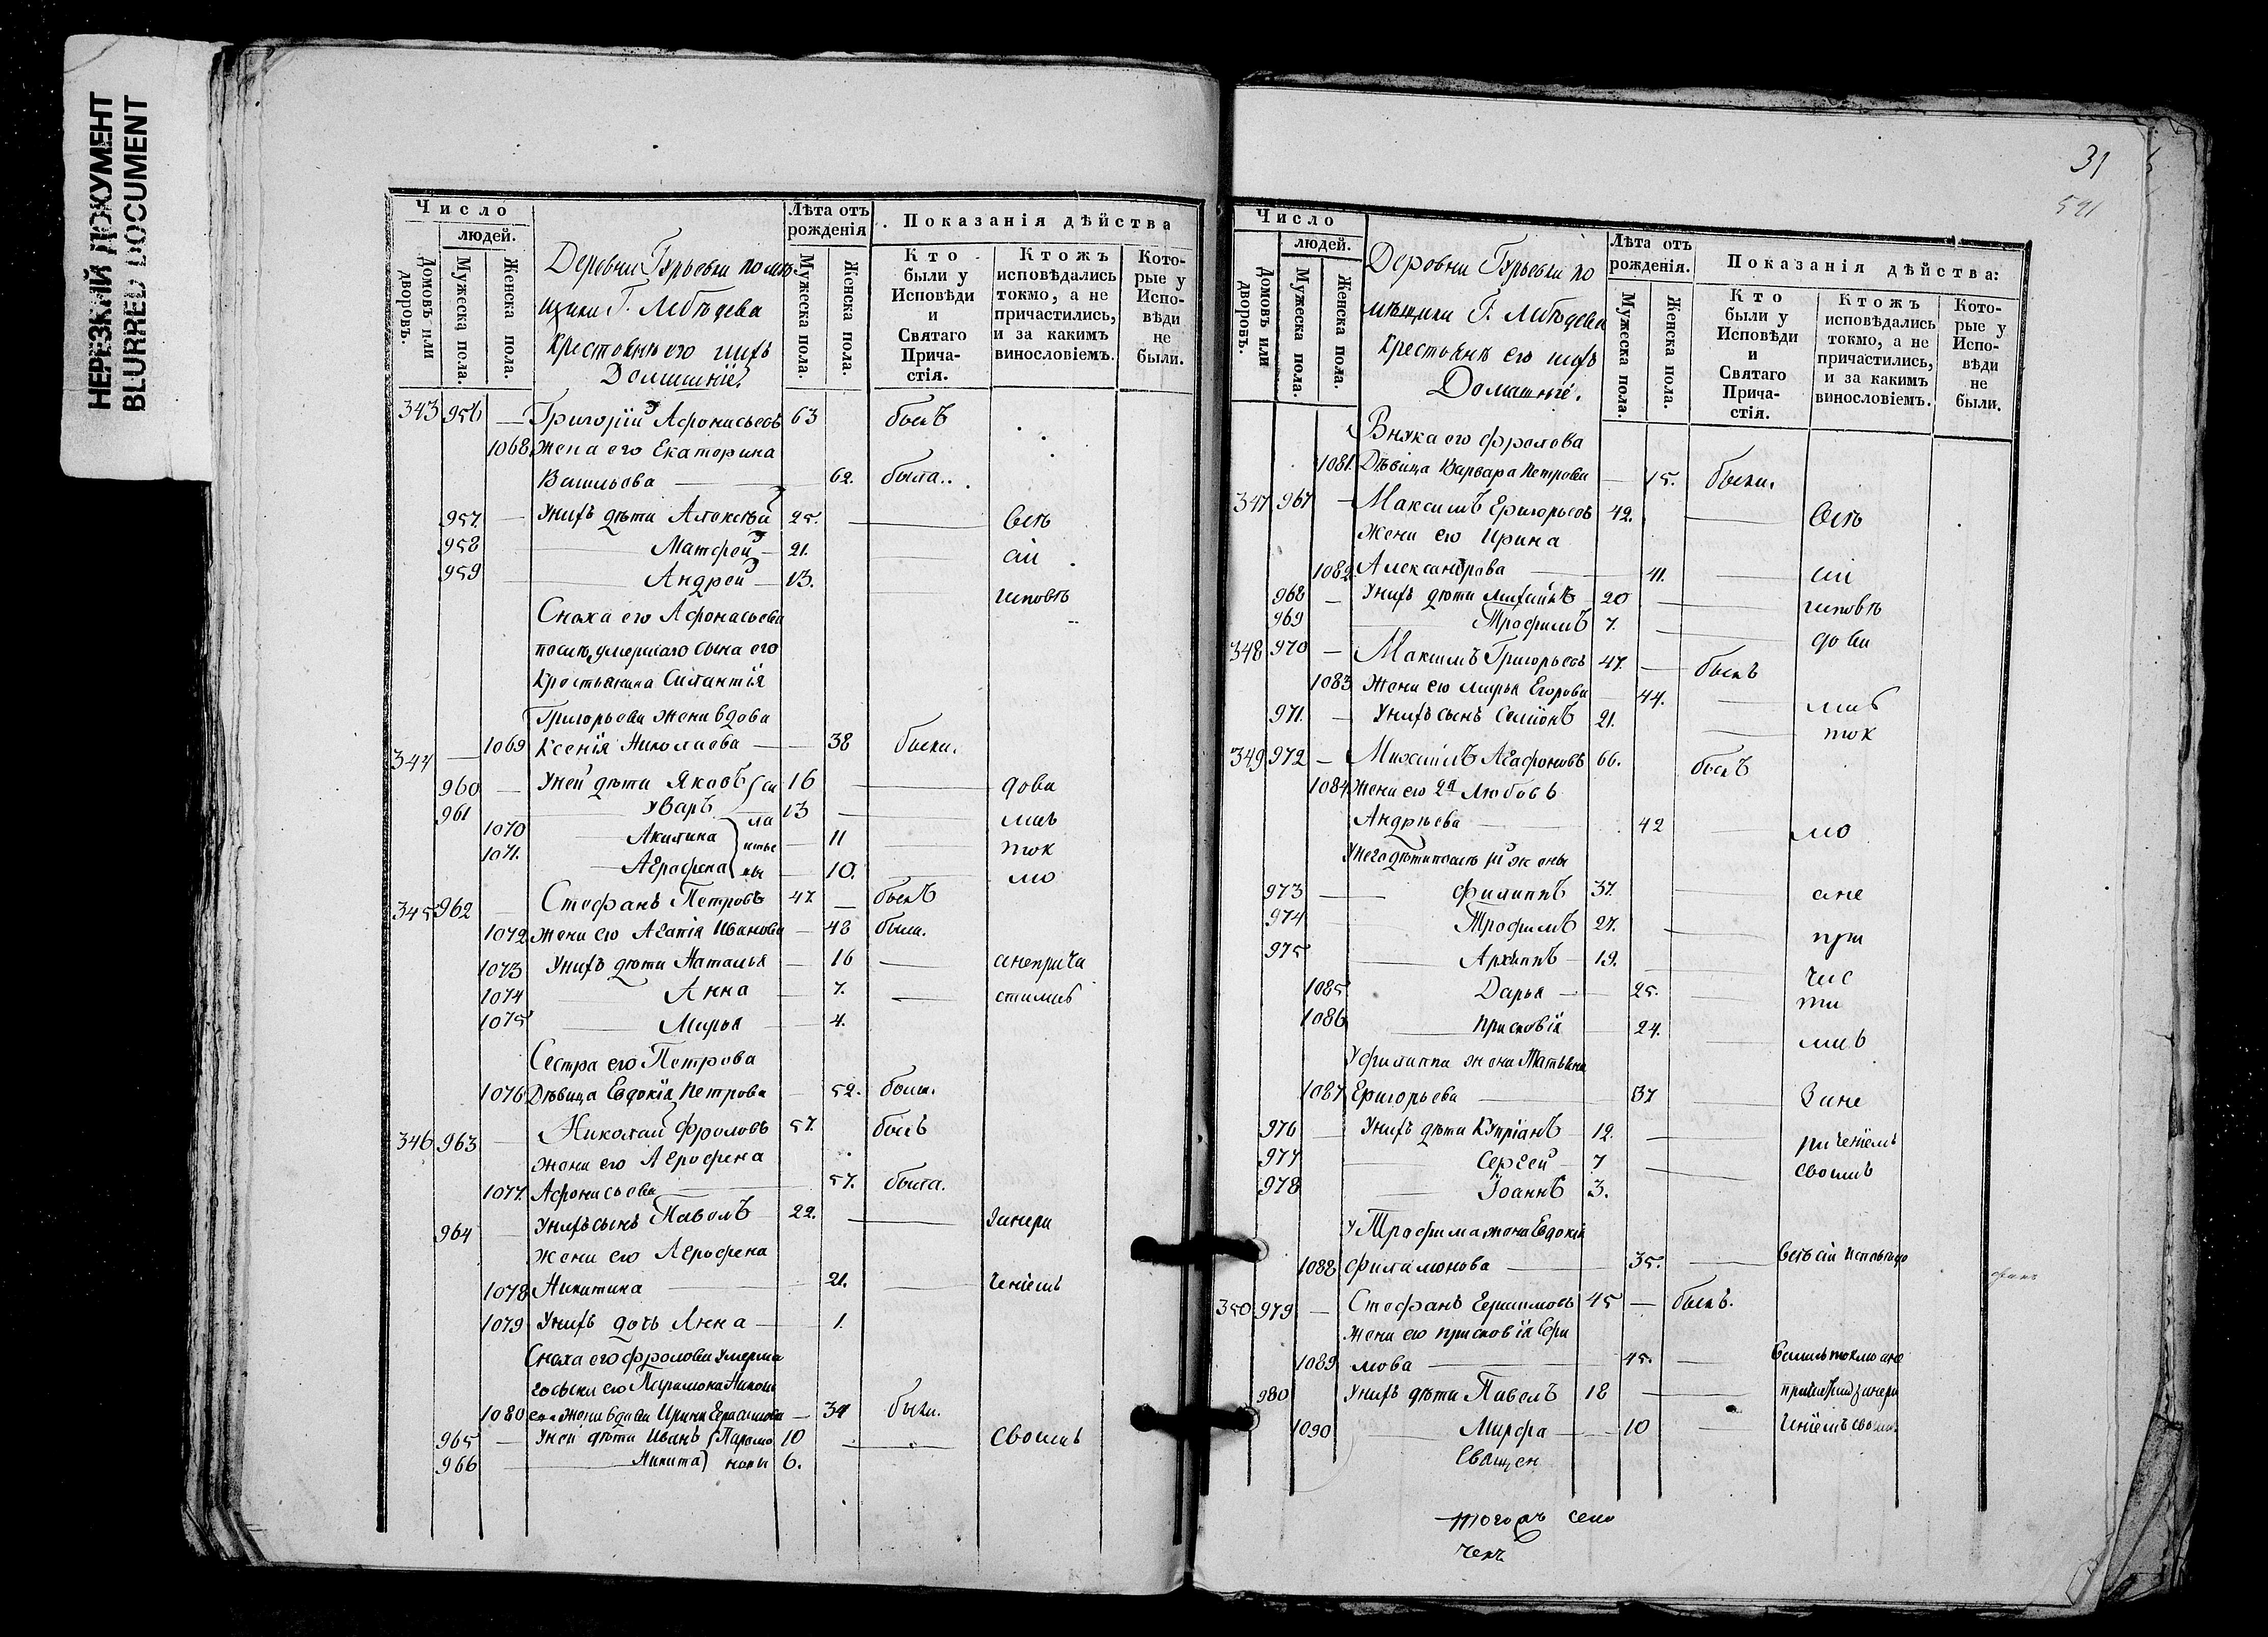 НЕРЕЗКИЙ ДОКУМЕНТ
BLURRED DOCUMENT
Число
людей.
Домовъ или дворовъ.
Мужеска пола.
Женска пола.
Деревни Гурьевки помѣ-
щика Г. Лебѣдева
Крестьянѣ его ихъ
Домашніе
Лѣта отъ рожденія
Мужеска пола.
Женска пола.
Показанія дѣйства
Кто были у Исповѣди и Святаго Прича-стія.
Ктожъ исповѣдались токмо, а не причастились, и за какимъ винословіемъ.
Кото-рые у Испо-вѣди не были.
343 956 — Григорій Афонасьевъ 63 былъ
1068 Жена его Екатерина
Васильева 62. была.
957 — У нихъ дѣти Алексѣй 25. Всѣ
958 Матфей 21. сіи
959 Андрей 13. исповѣ
Сноха его Афонасьева
послѣ умершаго сына его
Крестьянина Силантія
Григорьева жена вдова
344 — 1069 Ксенія Николаева 38 была.
960 — У ней дѣти Яковъ си 16 дова
961 Уваръ ла 13 лись
1070 Акилина нтье 11 ток
1071. Агрофена вы 10. мо
345 962 — Стефанъ Петровъ 47. былъ
1072 жена его Агапія Иванова 48 была.
1073 У нихъ дѣти Наталья 16 а неприча
1074 Анна 7. стились
1075 Марья 4.
Сестра его Петрова
1076 Дѣвица Евдокія Петрова 52. была.
346 963 — Николай Фроловъ 57. былъ
жена его Агрофена
1077. Афонасьева 57. была.
964 — У нихъ сынъ Павелъ 22. за нера
жена его Агрофена
1078 Никитина 21. ченіемъ
1079 У нихъ дочь Анна 1.
Сноха его Фролова умерша
го сына его Парамона Никола
1080 ева жена вдова Ирина Герасимова 34 была.
965 — У ней дѣти Иванъ Парамо 10 своимъ
966 Никита новы 6.
31
591
Число
людей.
Домовъ или дворовъ.
Мужеска пола.
Женска пола.
Деревни Гурьевки по
мѣщика Г. Лебѣдева
Крестьянѣ его ихъ
Домашніе.
Лѣта отъ рожденія.
Мужеска пола.
Женска пола.
Показанія дѣйства:
Кто были у Исповѣди и Святаго Прича-стія.
Ктожъ исповѣдались токмо, а не причастились, и за какимъ винословіемъ.
Кото-рые у Испо-вѣди не были.
Внука его Фролова
1081. Дѣвица Варвара Петрова 15. была.
347 967 — Максимъ Григорьевъ 42. Всѣ
Жена его Ирина
1082. Александрова 41. сіи
968 — У нихъ дѣти 20 исповѣ
969 Трофимъ 7. дова
348 970 — Максимъ Григорьевъ 47. былъ
1083 Жена его Марья Егорова 44. лись
971. — У нихъ сынъ Семіонъ 21. ток
349 972 — Михаилъ Агафоновъ 66. былъ
1084 Жена его 2я Любовь
Андрѣева 42 мо
У него дѣти отъ 1й жены
973 Филиппъ 37. а не
974 Трофимъ 27. при
975 Архипъ 19. час
1085 Дарья 25. ти
1086 Прасковія 24. лись
У Филиппа жена Татьяна
1087 Григорьева 37 За не
976 — У нихъ дѣти Купріанъ 12. раченіемъ
977 Сергей 7 своимъ
978 Іоаннъ 3.
У Трофима жена Евдокія
1088 Филимонова 35. Всѣ сіи исповѣдо
350 979 — Стефанъ Герасимовъ 45 — былъ.
жена его Прасковія Ефи
1089 мова 45. вались токмо а не
980 У нихъ дѣти Павелъ 18 за нера
1090 Марфа 10 ченіемъ своим.
Священ
тогожъ села